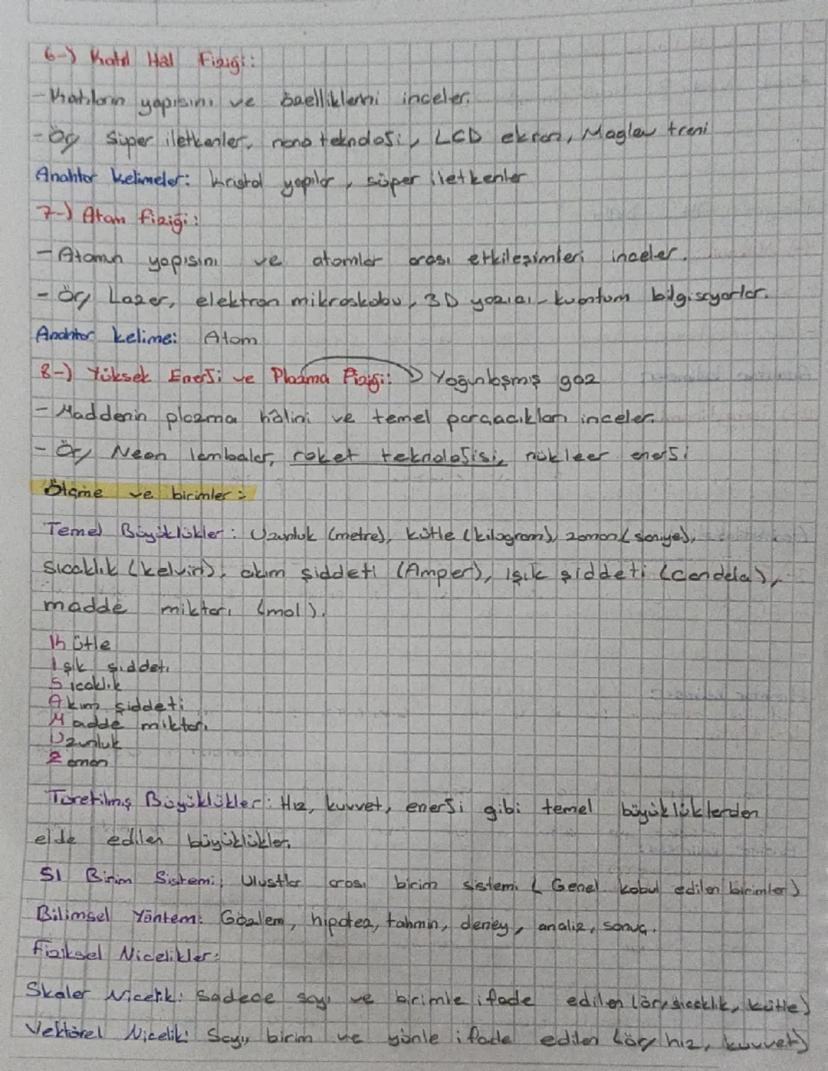 6-) Katı Hal Fiziği:
-Katıların yapısını ve özelliklerini inceler.
-Ör/ Süper iletkenler, nano teknoloji, LCD ekran, Maglev treni
Anahtar kelimeler: kristal yapılar, süper iletkenler
7-) Atom fiziği:
-Atomun yapısını ve atomlar arası etkileşimleri inceler.
-Ör/ Lazer, elektron mikroskobu, 3D yazıcı-kuantum bilgisayarlar.
Anahtar kelime: Atom
8-) Yüksek Enerji ve Plazma Fiziği: → Yoğunlaşmış gaz
-Maddenin plazma hâlini ve temel parçacıkları inceler.
-Ör/ Neon lambalar, roket teknolojisi, nükleer enerji
Ölçme ve birimler:
Temel Büyüklükler: Uzunluk (metre), kütle (kilogram), zaman (saniye),
sıcaklık (kelvin), akım şiddeti (Amper), ışık şiddeti (candela),
madde miktarı (mol).
Kütle
Işık şiddeti
Sıcaklık
Akım şiddeti
Madde miktarı
Uzunluk
Zaman
Türetilmiş Büyüklükler: Hız, kuvvet, enerji gibi temel büyüklüklerden
elde edilen büyüklükler.
SI Birim Sistemi: Uluslar arası birim sistemi (Genel kabul edilen birimler)
Bilimsel Yöntem: Gözlem, hipotez, tahmin, deney, analiz, sonuç.
Fiziksel Nicelikler:
Skaler Nicelik: Sadece sayı ve birimle ifade edilen (ör/ sıcaklık, kütle)
Vektörel Nicelik: Sayı, birim ve yönle ifade edilen (ör/ hız, kuvvet)